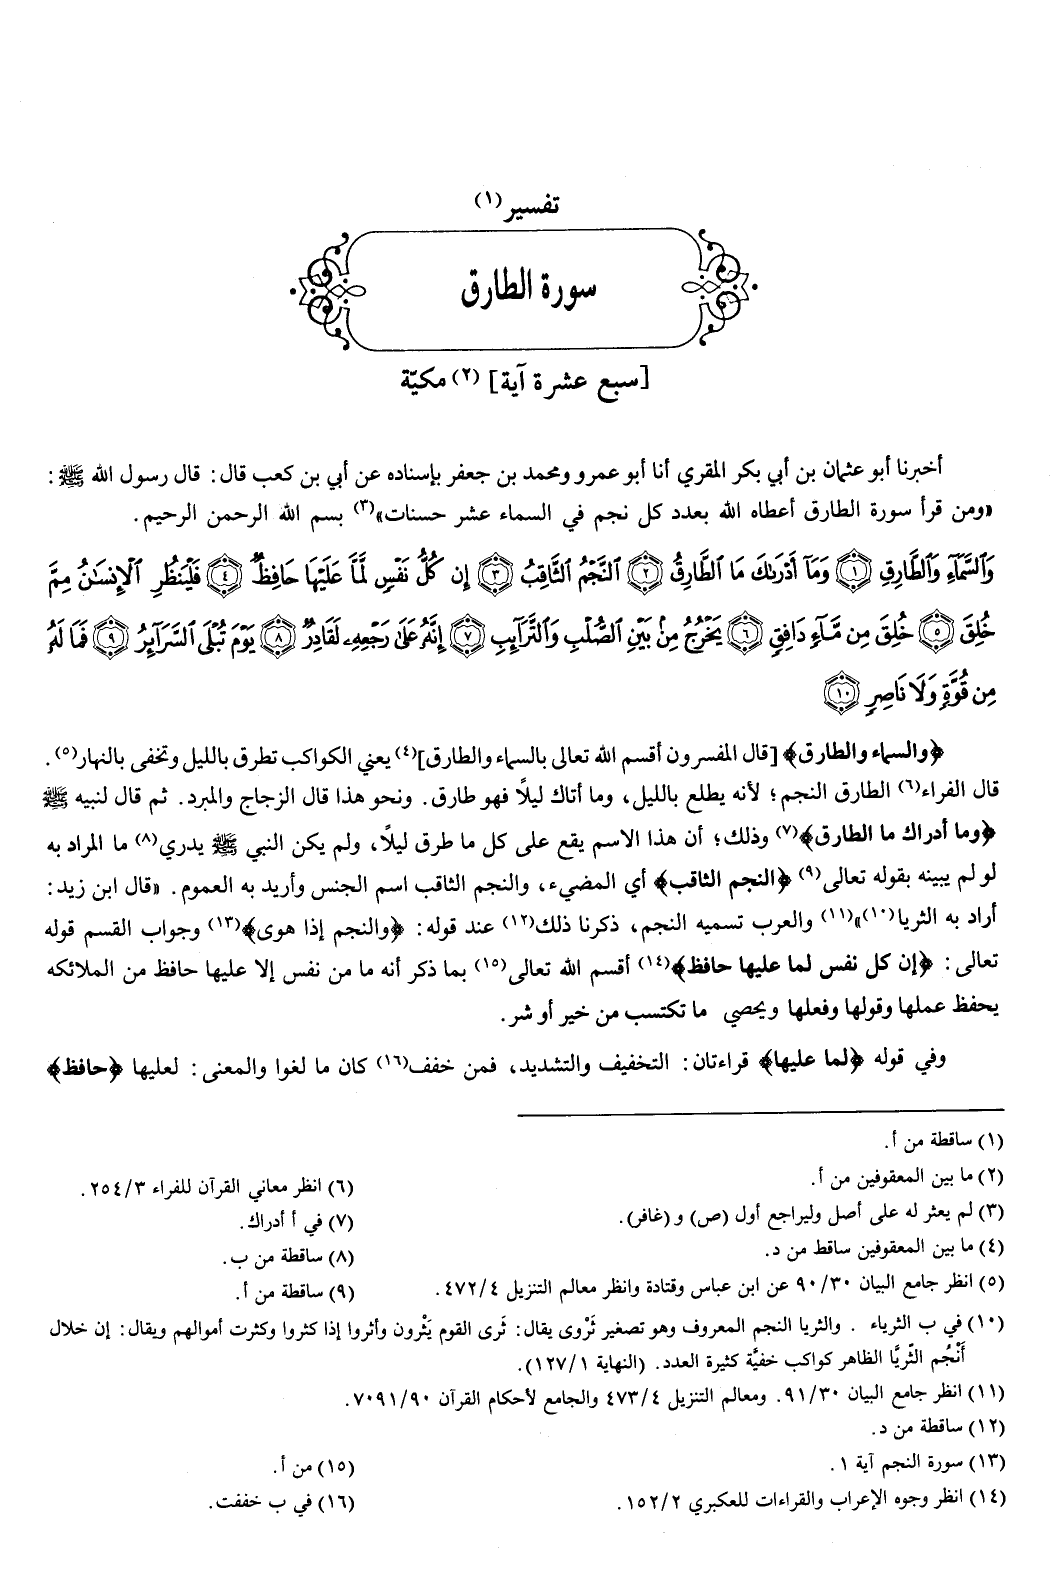 تفسير(١)
سورة الطارق
[سبع عشرة آية] (٢) مكيّة
أخبرنا أبو عثمان بن أبي بكر المقري أنا أبو عمرو ومحمد بن جعفر بإسناده عن أبي بن كعب قال: قال رسول الله ﷺ:
«ومن قرأ سورة الطارق أعطاه الله بعدد كل نجم في السماء عشر حسنات»(٣) بسم الله الرحمن الرحيم.
وَٱلسَّمَآءِ وَٱلطَّارِقِ ﴿١﴾ وَمَآ أَدْرَىٰكَ مَا ٱلطَّارِقُ ﴿٢﴾ ٱلنَّجْمُ ٱلثَّاقِبُ ﴿٣﴾ إِن كُلُّ نَفْسٍ لَّمَّا عَلَيْهَا حَافِظٌ ﴿٤﴾ فَلْيَنظُرِ ٱلْإِنسَٰنُ مِمَّ
خُلِقَ ﴿٥﴾ خُلِقَ مِن مَّآءٍ دَافِقٍ ﴿٦﴾ يَخْرُجُ مِنۢ بَيْنِ ٱلصُّلْبِ وَٱلتَّرَآئِبِ ﴿٧﴾ إِنَّهُۥ عَلَىٰ رَجْعِهِۦ لَقَادِرٌ ﴿٨﴾ يَوْمَ تُبْلَى ٱلسَّرَآئِرُ ﴿٩﴾ فَمَا لَهُۥ
مِن قُوَّةٍ وَلَا نَاصِرٍ ﴿١٠﴾
﴿والسماء والطارق﴾ [قال المفسرون أقسم الله تعالى بالسماء والطارق](٤) يعني الكواكب تطرق بالليل وتخفى بالنهار(٥).
قال الفراء(٦) الطارق النجم؛ لأنه يطلع بالليل، وما أتاك ليلًا فهو طارق. ونحو هذا قال الزجاج والمبرد. ثم قال لنبيه ﷺ
﴿وما أدراك ما الطارق﴾(٧) وذلك؛ أن هذا الاسم يقع على كل ما طرق ليلًا، ولم يكن النبي ﷺ يدري(٨) ما المراد به
لو لم يبينه بقوله تعالى(٩) ﴿النجم الثاقب﴾ أي المضيء، والنجم الثاقب اسم الجنس وأريد به العموم. «قال ابن زيد:
أراد به الثريا(١٠)»(١١) والعرب تسميه النجم، ذكرنا ذلك(١٢) عند قوله: ﴿والنجم إذا هوى﴾(١٣) وجواب القسم قوله
تعالى: ﴿إن كل نفس لما عليها حافظ﴾(١٤) أقسم الله تعالى(١٥) بما ذكر أنه ما من نفس إلا عليها حافظ من الملائكه
يحفظ عملها وقولها وفعلها ويحصي ما تكتسب من خير أو شر.
وفي قوله ﴿لما عليها﴾ قراءتان: التخفيف والتشديد، فمن خفف(١٦) كان ما لغوا والمعنى: لعليها ﴿حافظ﴾
(١) ساقطة من أ.
(٢) ما بين المعقوفين من أ.
(٣) لم يعثر له على أصل وليراجع أول (ص) و (غافر).
(٤) ما بين المعقوفين ساقط من د.
(٥) انظر جامع البيان ٩٠/٣٠ عن ابن عباس وقتادة وانظر معالم التنزيل ٤٧٢/٤.
(٦) انظر معاني القرآن للفراء ٢٥٤/٣.
(٧) في أ أدراك.
(٨) ساقطة من ب.
(٩) ساقطة من أ.
(١٠) في ب الثرياء . والثريا النجم المعروف وهو تصغير ثَرْوى يقال: ثَرى القوم يَثْرون وأثروا إذا كثروا وكثرت أموالهم ويقال: إن خلال
أَنْجُم الثّريَّا الظاهر كواكب خفيَّة كثيرة العدد. (النهاية ١٢٧/١).
(١١) انظر جامع البيان ٩١/٣٠. ومعالم التنزيل ٤٧٣/٤ والجامع لأحكام القرآن ٧٠٩١/٩٠.
(١٢) ساقطة من د.
(١٣) سورة النجم آية ١.
(١٤) انظر وجوه الإعراب والقراءات للعكبري ١٥٢/٢.
(١٥) من أ.
(١٦) في ب خففت.